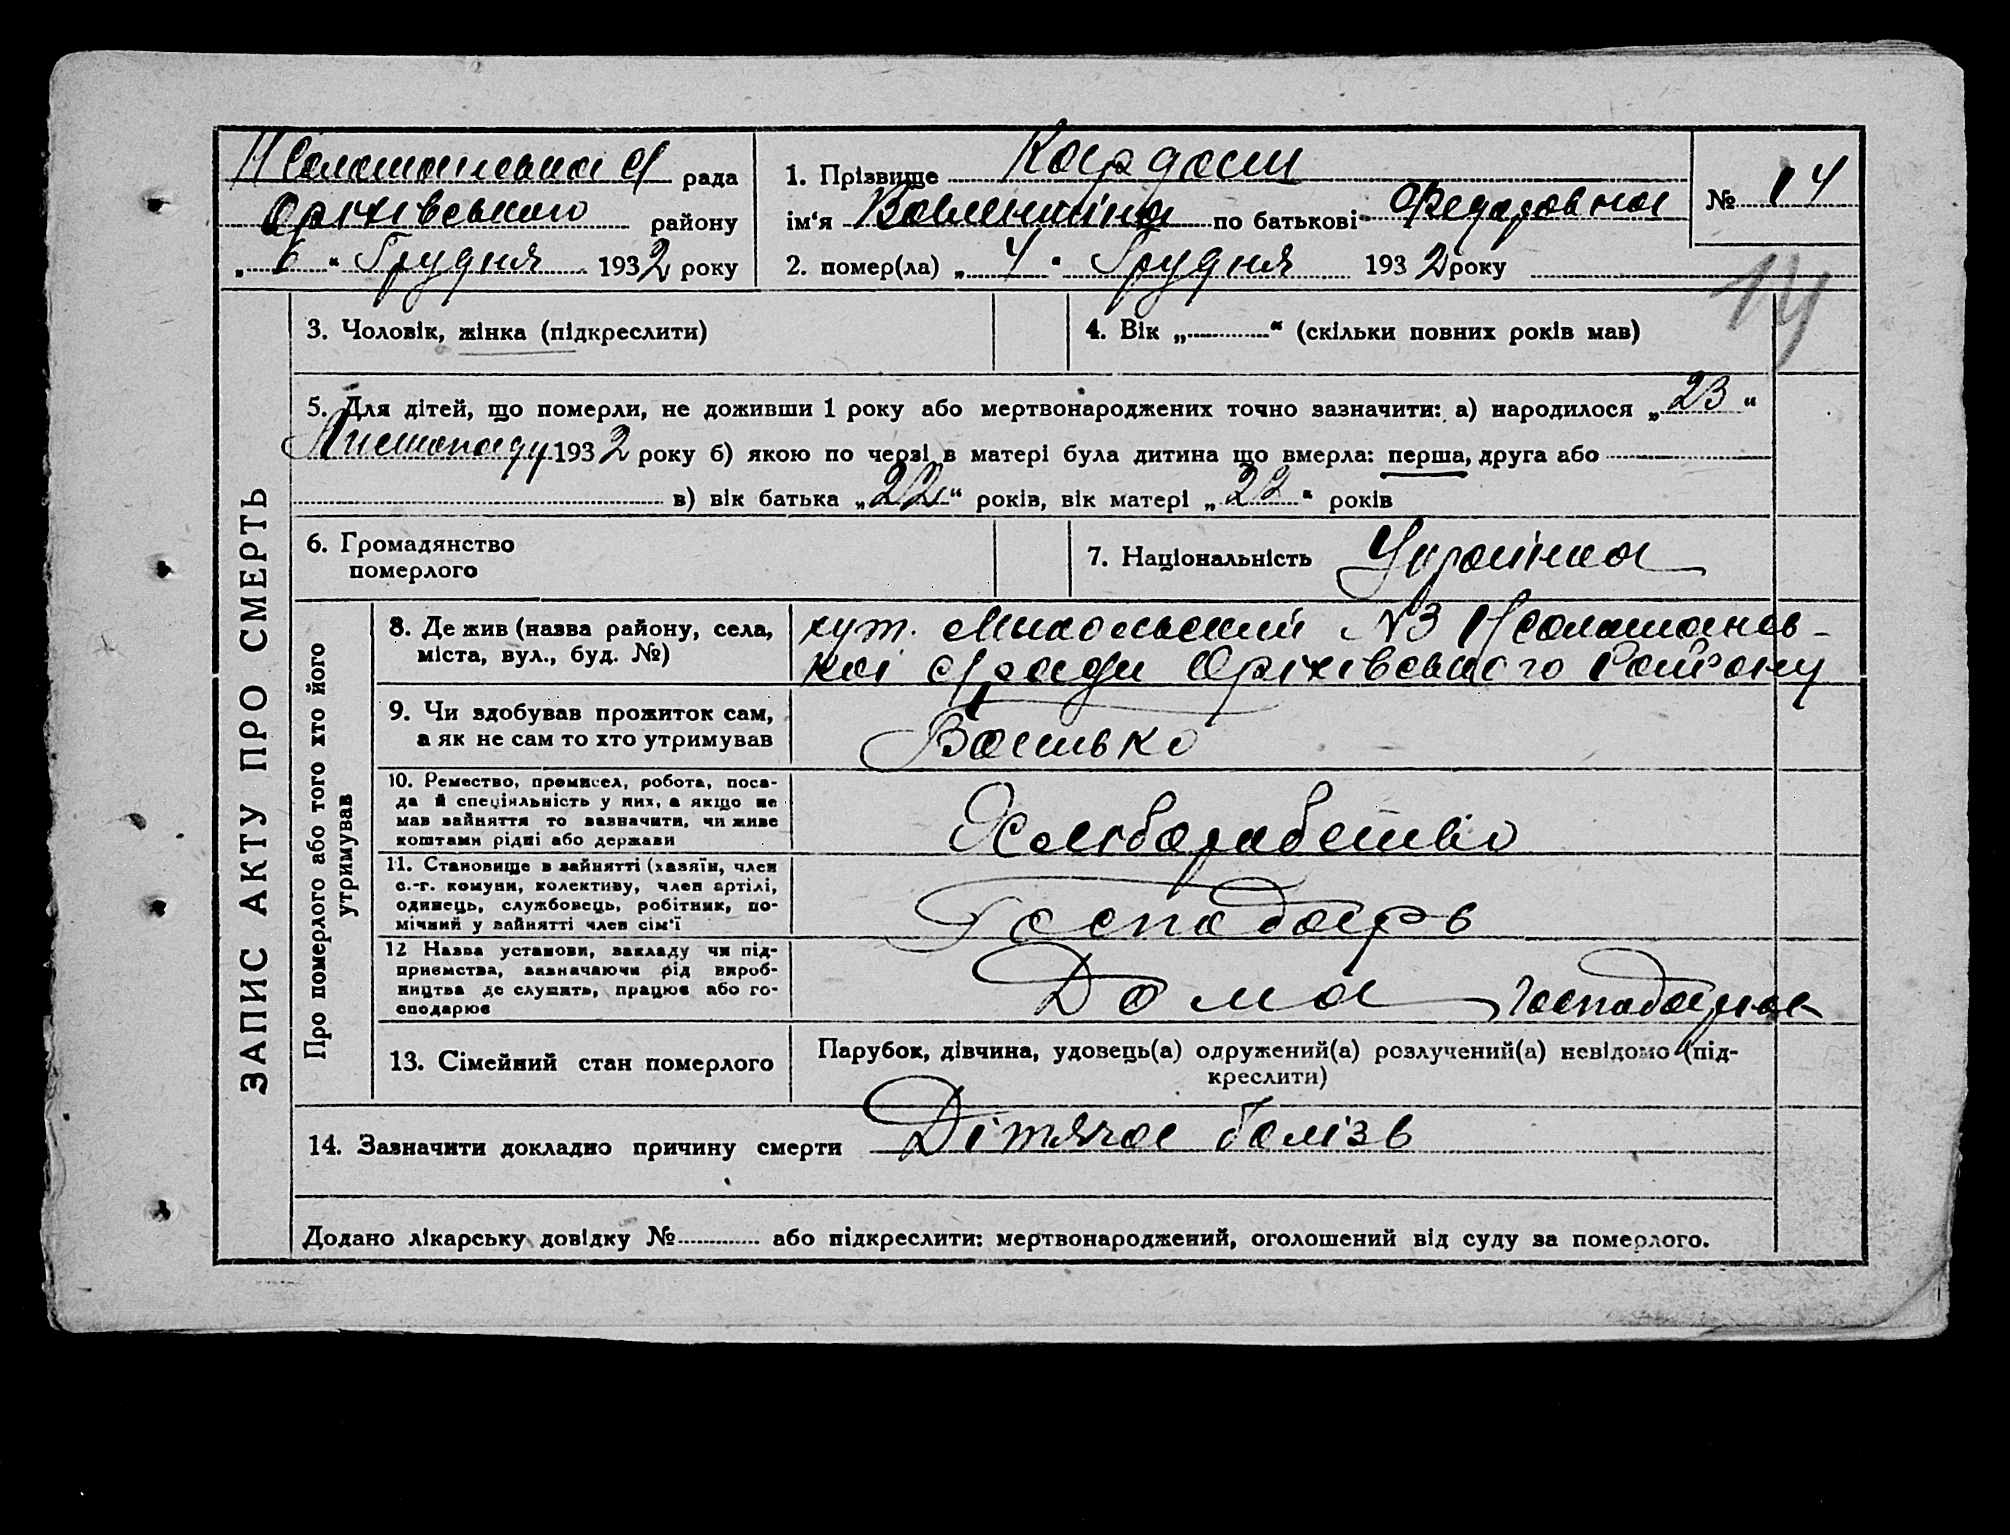 рада
Оріхівського району
„ 6 “ Грудня 1932 року
1. Прізвище Кардаш
ім‘я Валентіна по батькові Федаровна
2. помер(ла) „ 4 “ Грудня 1932 року
№ 14
14
ЗАПИС АКТУ ПРО СМЕРТЬ
3. Чоловік, жінка (підкреслити)
4. Вік „ “ (скільки повних років мав)
5. Для дітей, що померли, не доживши 1 року або мертвонароджених точно зазначити: а) народилося „ 23 “
Листопаду 1932 року б) якою по черзі в матері була дитина що вмерла: перша, друга або
в) вік батька „ 22 “ років, вік матері „ 22 “ років
6. Громадянство
померлого
7. Національність Українка
Про померлого або того хто його
утримував
8. Де жив (назва району, села,
міста, вул., буд. №)
хут. Микольський №3
кої Сради Оріхівського Району
9. Чи здобував прожиток сам,
а як не сам то хто утримував
Батько
10. Ремество, промисел, робота, поса-
да й спеціяльність у них, а якщо не
мав зайняття то зазначити, чи живе
коштами рідні або держави
Хліборобство
11. Становище в зайнятті (хазяїн, член
с.-г. комуни, колективу, член артілі,
одинець, службовець, робітник, по-
мічний у зайнятті член сім‘ї
Господарь
12 Назва установи, закладу чи під-
приємства, зазначаючи рід вироб-
ництва де служить, працює або го-
сподарює
Дома господарює
13. Сімейний стан померлого
Парубок, дівчина, удовець(а) одружений(а) розлучений(а) невідомо (під-
креслити)
14. Зазначити докладно причину смерти Дітяча болізь
Додано лікарську довідку № або підкреслити: мертвонароджений, оголошений від суду за померлого.